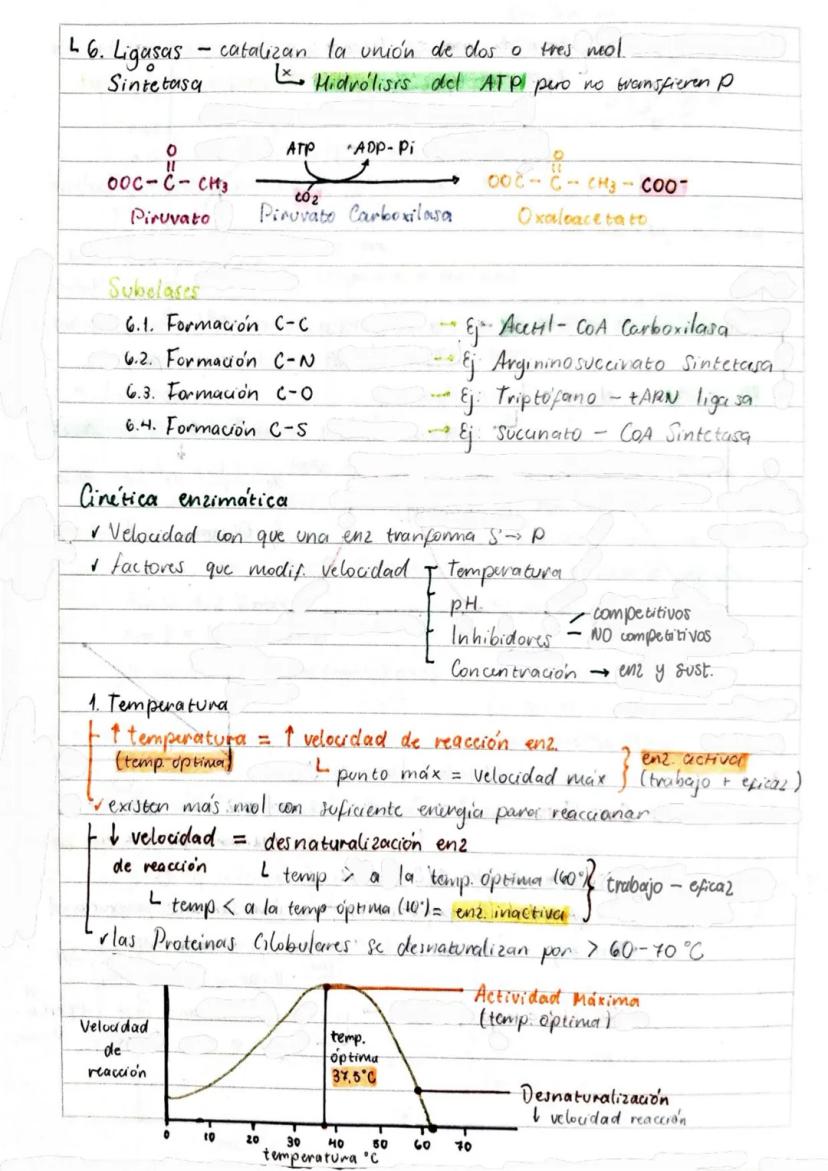 ↳ 6. Ligasas – catalizan la unión de dos o tres mol.
o
Sintetasa ↳x→ Hidrólisis del ATP pero no transfieren P
O ATP ADP-Pi O
OOC – C – CH3 → OOC – C – CH3 – COO⁻
CO2
Piruvato Piruvato Carboxilasa Oxaloacetato
Subclases
6.1. Formación C-C → Ej. Acetil-CoA Carboxilasa
6.2. Formación C-N → Ej Argininosuccinato Sintetasa
6.3. Formación C-O → Ej. Triptófano – tARN ligasa
6.4. Formación C-S → Ej Succinato – CoA Sintetasa
Cinética enzimática
✓ Velocidad con que una enz tranforma S → P
✓ factores que modif. velocidad Temperatura
pH
competitivos
Inhibidores – NO competitivos
Concentración → enz y sust.
1. Temperatura
↑ temperatura = ↑ velocidad de reacción enz.
(temp. óptima) ↳ punto máx = velocidad máx } enz. activa (trabajo + eficaz)
✓ existen más mol con suficiente energía para reaccionar
↓ velocidad = desnaturalización enz
de reacción ↳ temp > a la temp. óptima (60°) } trabajo – eficaz
↳ temp < a la temp óptima (10°) = enz. inactiva
✓ las Proteínas Globulares se desnaturalizan por > 60-70 °C
Actividad Máxima
(temp. óptima)
Velocidad
de
reacción
temp.
óptima
37,5°C
Desnaturalización
↓ velocidad reacción
0 10 20 30 40 50 60 70
temperatura °C